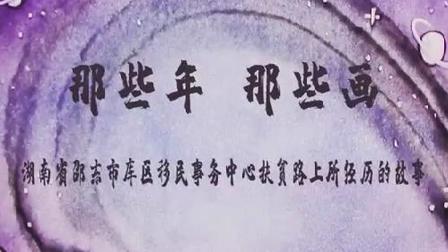 那些年 那些画
湖南省邵东市库区移民事务中心扶贫路上所经历的故事